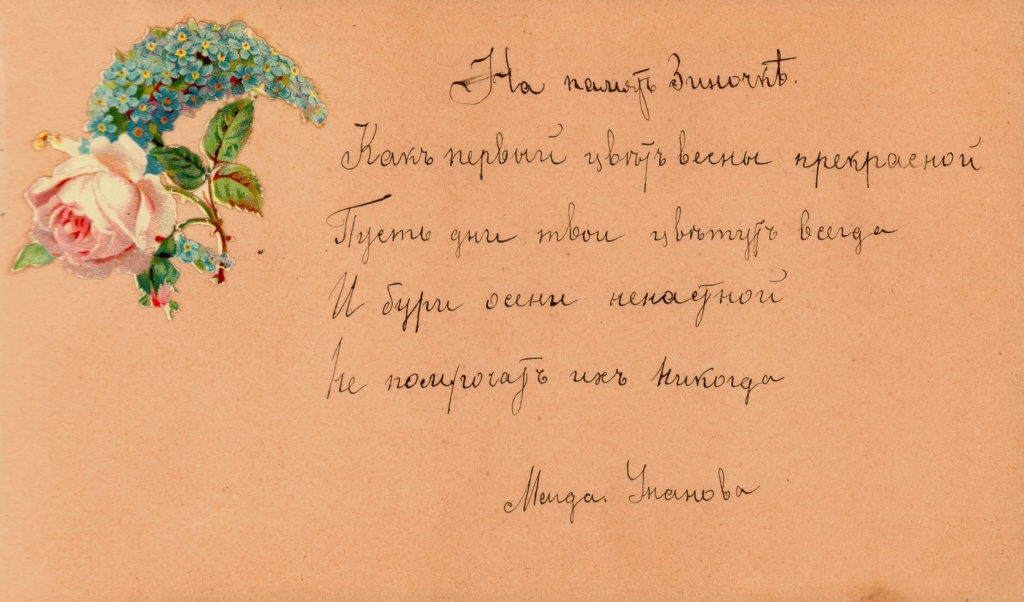 На память Зиночкѣ.
Какъ первый цвѣтъ весны прекрасной
Пусть дни твои цвѣтутъ всегда
И бури осени ненастной
Не помрочатъ ихъ никогда